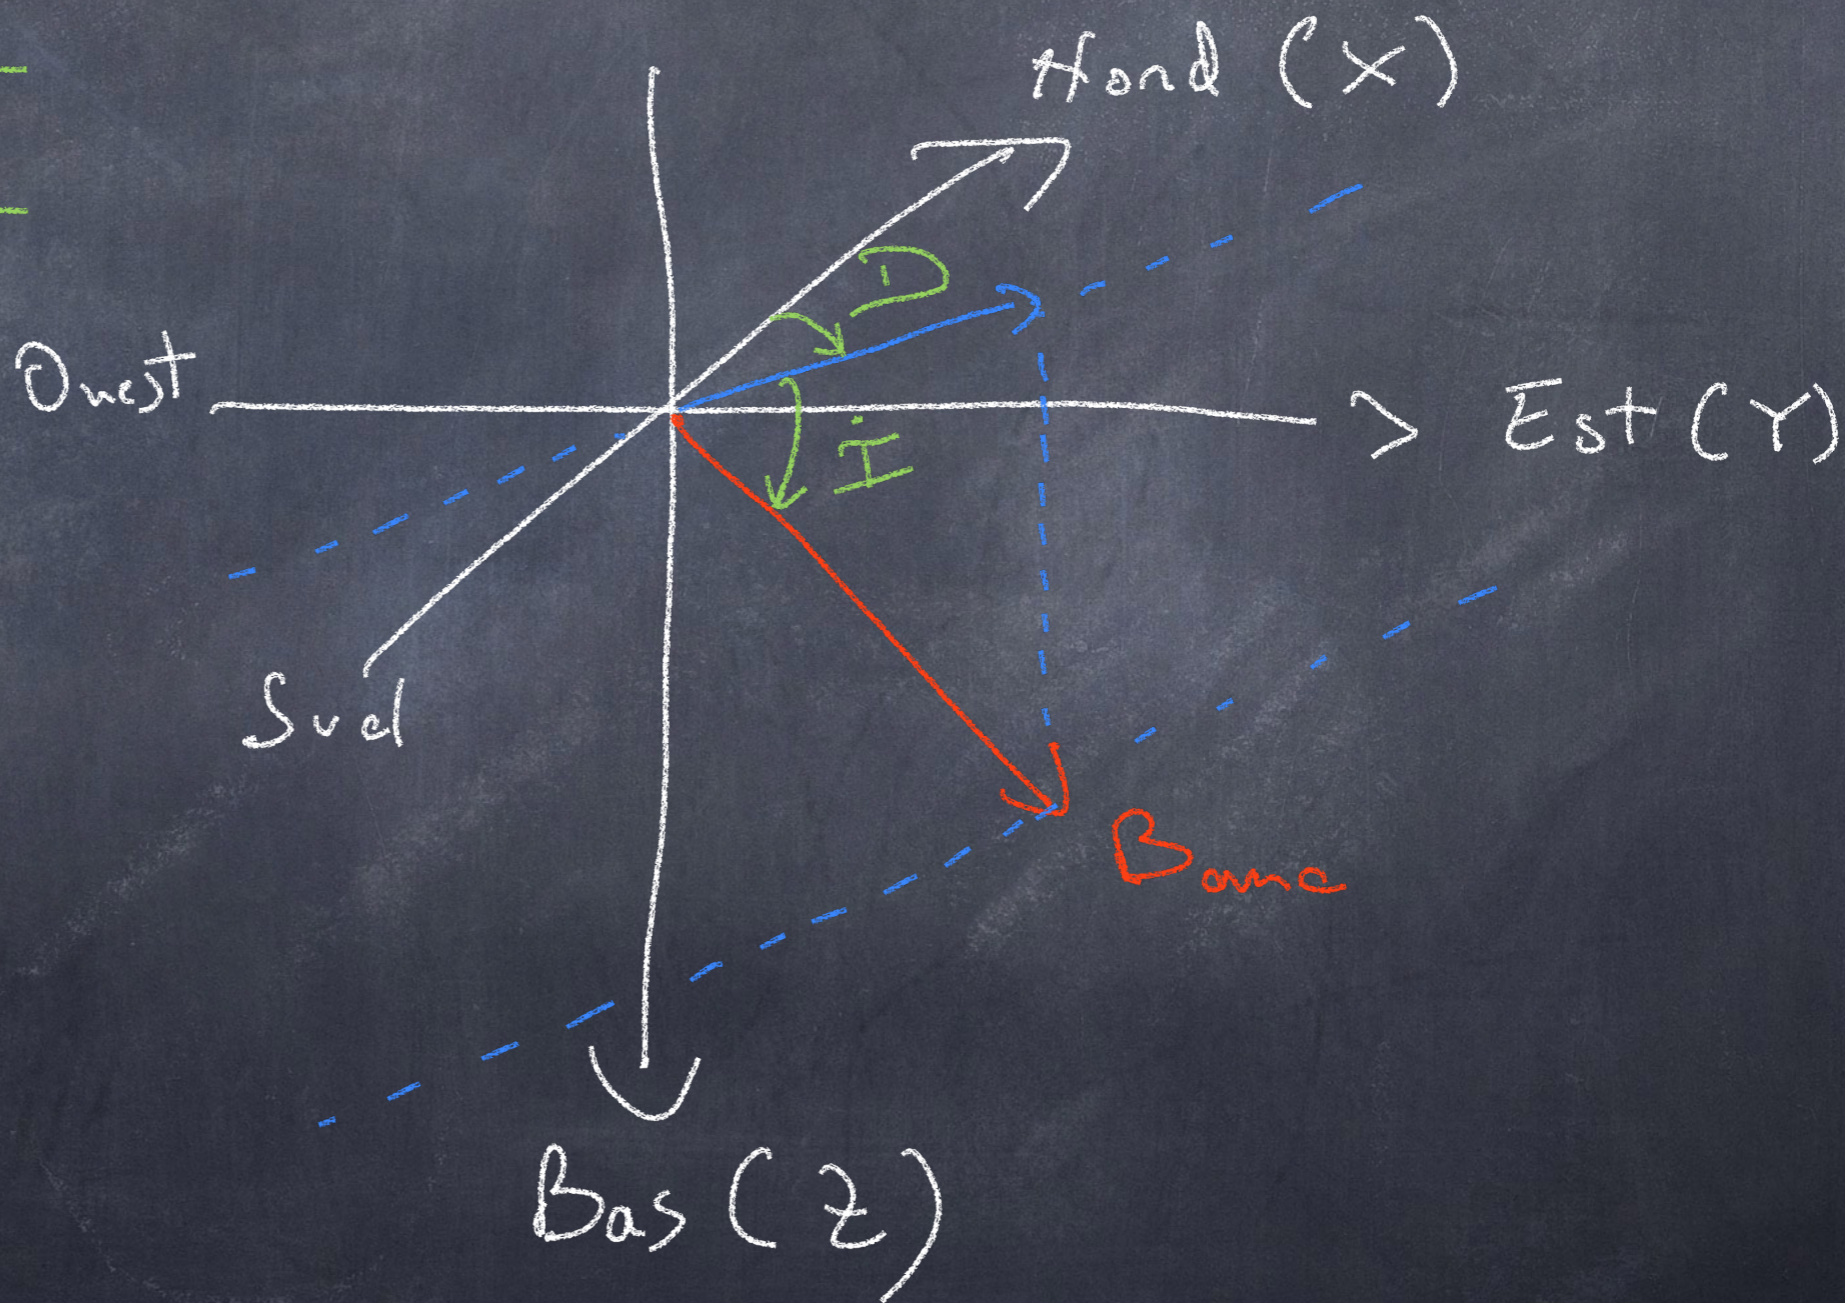 Nord (X)
D
Ouest
Est (Y)
I
Sud
Banc
Bas (Z)